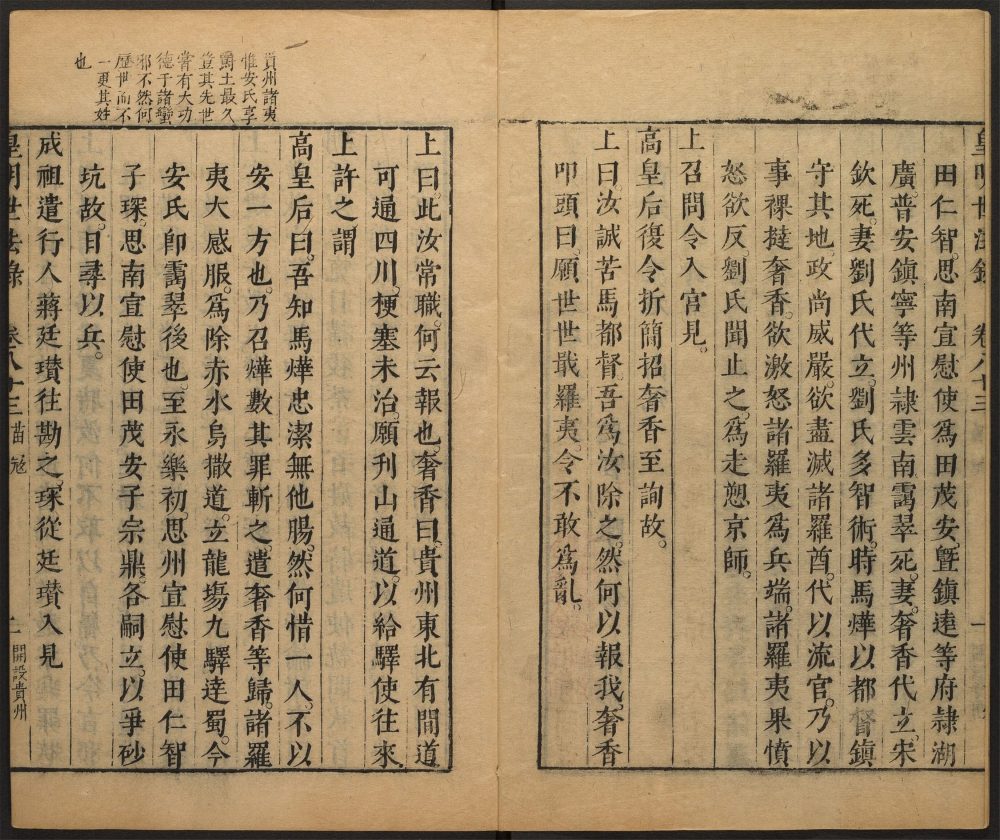 皇明世法錄 卷八十三 一
田仁智。思南宣慰使爲田茂安。曁鎮遠等府隷湖
廣。普安鎮寧等州隷雲南。靄翠死。妻奢香代立。宋
欽死。妻劉氏代立。劉氏多智術。時馬燁以都督鎮
守其地。政尚威嚴。欲盡滅諸羅酋。代以流官。乃以
事裸撻奢香。欲激怒諸羅夷爲兵端。諸羅夷果憤
怒欲反。劉氏聞止之。爲走愬京師。
上召問令入宮見。
高皇后復令折簡招奢香至詢故。
上曰。汝誠苦馬都督。吾爲汝除之。然何以報我。奢香
叩頭曰。願世世戢羅夷。令不敢爲亂。
上曰。此汝常職。何云報也。奢香曰。貴州東北有間道
可通四川。梗塞未治。願刊山通道。以給驛使往來
上許之謂
高皇后曰。吾知馬燁忠潔無他腸。然何惜一人。不以
安一方也。乃召燁數其罪斬之。遣奢香等歸。諸羅
夷大感服。爲除赤水烏撒道。立龍塲九驛達蜀。今
安氏卽靄翠後也。至永樂初思州宣慰使田仁智
子琛。思南宣慰使田茂安子宗鼎。各嗣立。以爭砂
坑故。日尋以兵。
成祖遣行人蔣廷瓚往勘之。琛從廷瓚入見
貴州諸夷
惟安氏享
爵土最久
豈其先世
嘗有大功
德于諸蠻
邪不然何
歷世而不
一更其姓
也
皇明世法錄 卷八十三 苗 二 開設貴州